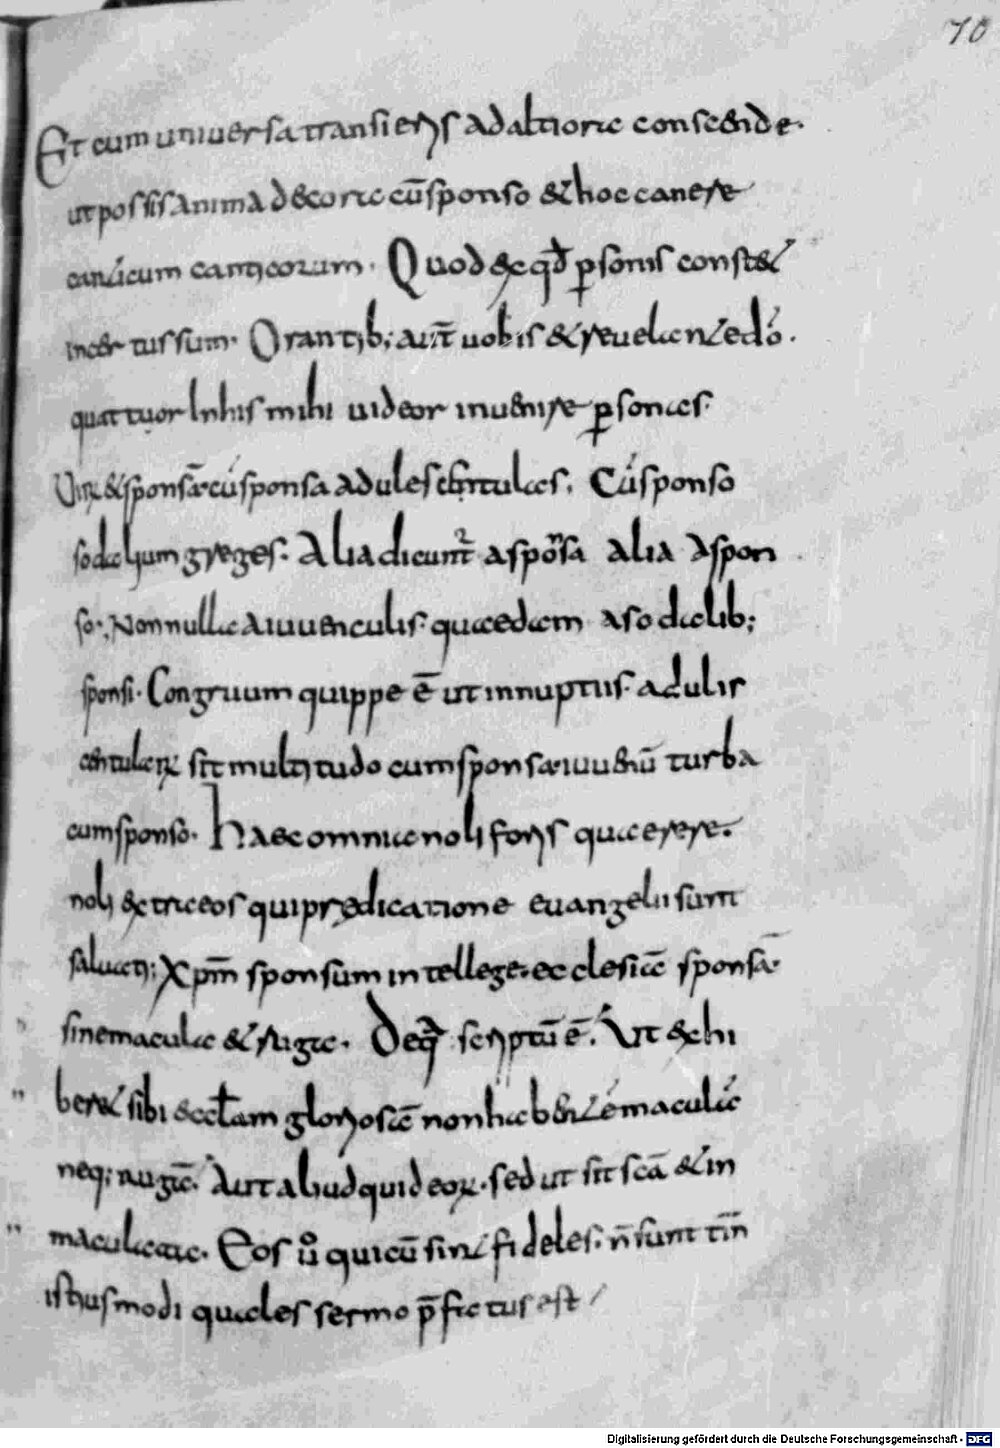 70
Et cum uniuersa transieris ad altiora conscende.
ut possis anima decora cū sponso & hoc canere
canticum canticorum. Quod ex qđ personis constet
incertus sum. Orantib; aut̄ uobis & reuelante dō.
quattuor In his mihi uideor inuenire ꝑsonas.
Uirū & sponsā. cū sponsa adulescentulas. Cū sponso
sodalium greges. Alia dicunt̄ a sponsa alia a spon
so. Nonnulla a iuuenculis. quaedam a sodalib;
sponsi. Congruum quippe ē ut in nuptiis. adules
centularū sit multitudo cum sponsa. iuuenū turba
cum sponso. haec omnia noli foris quaerere.
noli extra eos qui prędicatione euangelii sunt
saluati; xpm̄ sponsum intellege. ecclesiā sponsā.
sine macula & ruga. De qua scriptū ē. Ut exhi
beret sibi eccłam gloriosā non habentē maculā
neq; rugā. Aut aliud quid eorū. sed ut sit scā & in
maculata. Eos ū quicū sint fideles. n̄ sunt tn̄
istiusmodi quales sermo p̄fatus est
Digitalisierung gefördert durch die Deutsche Forschungsgemeinschaft - DFG